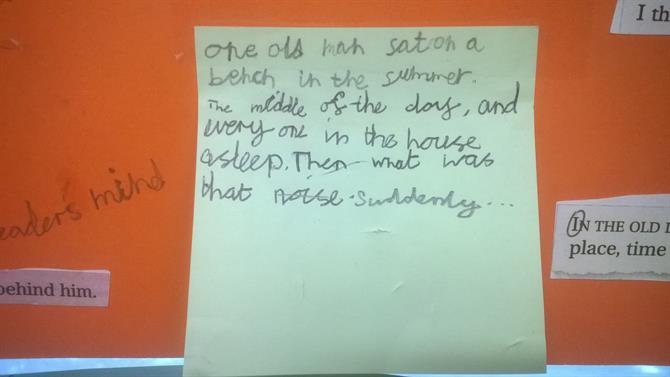 I th
one old man sat on a
bench in the summer.
The middle of the day, and
every one in the house
asleep. Then what was
that noise. Suddenly...
eaders mind
IN THE OLD
place, time
behind him.